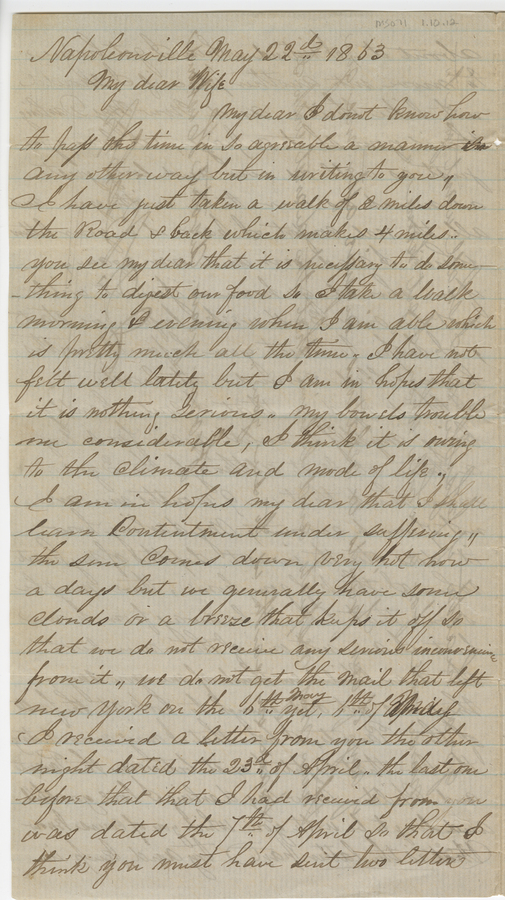 MS071 1.10.12
Napoleonville May 22d 1863
My dear Wife
My dear I do not know how
to pass the time in so agreeable a manner in
any other way but in writing to you,,
I have just taken a walk of 2 miles down
the Road & back which makes 4 miles..
you see my dear that it is necessary to do some-
-thing to digest our food so I take a walk
morning & evening when I am able which
is pretty much all the time,, I have not
felt well lately but I am in hopes that
it is nothing serious.. my bowels trouble
me considerable, I think it is owing
to the climate and mode of life,,
I am in hopes my dear that I shall
learn Contentment under suffering,,
the sun Comes down very hot now
a days but we generally have some
clouds or a breeze that keeps it off so
that we do not receive any serious inconvenience
from it,, we do not get the mail that left
new York on the 6th yet, 6th of May
I received a letter from you the other
night dated the 23d of April.. the last one
before that that I had received from you
was dated the 7th of April so that I
think you must have sent two letters